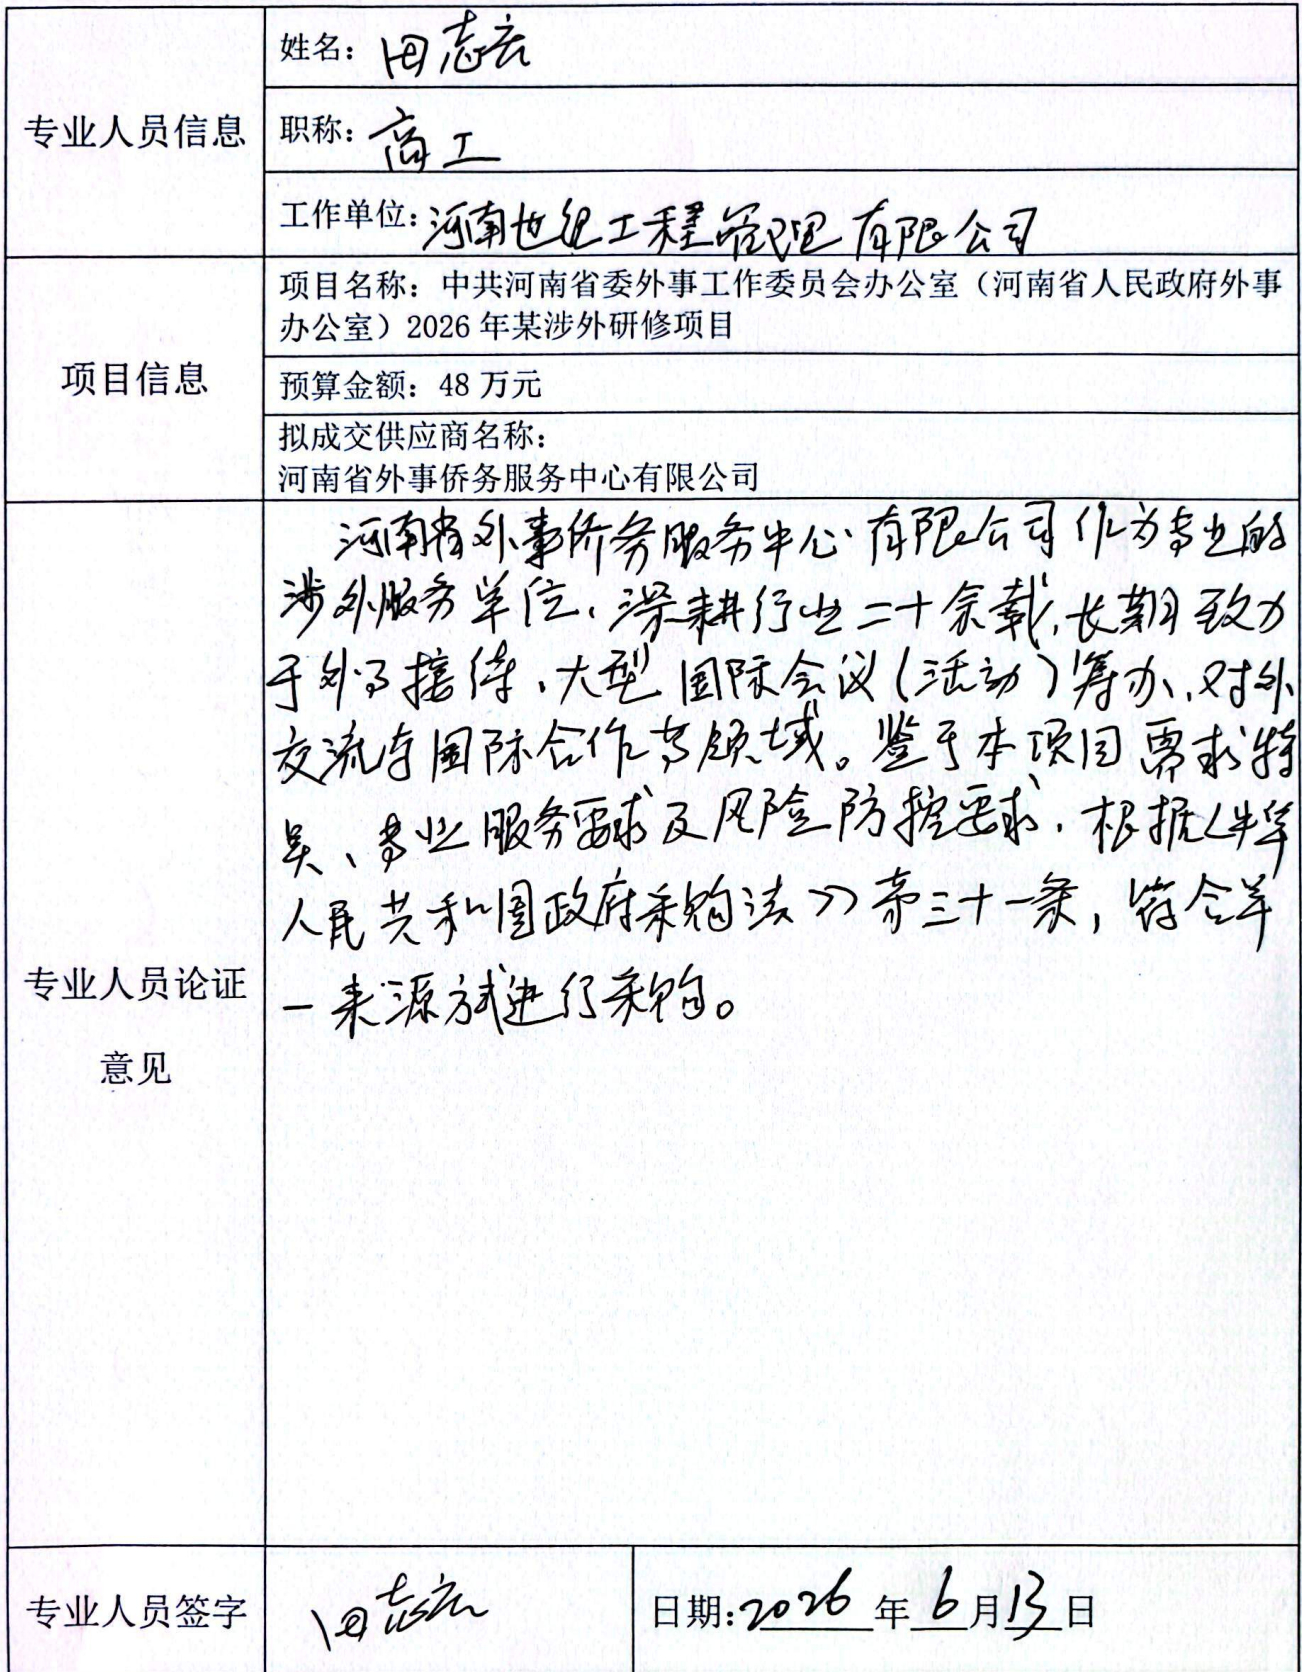 姓名：田志宏
专业人员信息
职称：高工
工作单位：河南世纪工程管理有限公司
项目名称：中共河南省委外事工作委员会办公室（河南省人民政府外事
办公室）2026年某涉外研修项目
项目信息
预算金额：48万元
拟成交供应商名称：
河南省外事侨务服务中心有限公司
河南省外事侨务服务中心有限公司作为专业的
涉外服务单位，深耕行业二十余载，长期致力
于外事接待、大型国际会议（活动）筹办、对外
交流与国际合作等领域。鉴于本项目需求特
异、专业服务要求及风险防控要求，根据《中华
人民共和国政府采购法》第三十一条，符合单
一来源方式进行采购。
专业人员论证
意见
专业人员签字
田志宏
日期：2026年6月13日